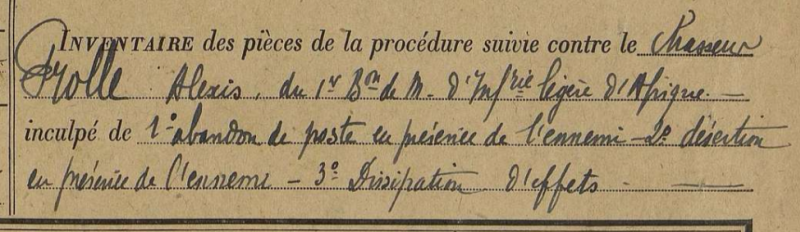 INVENTAIRE des pièces de la procédure suivie contre le Chasseur
Prolle Alexis, du 1er Bon de M. d'Infrie légère d'Afrique. —
inculpé de 1° abandon de poste en présence de l'ennemi – 2° désertion
en présence de l'ennemi – 3° Dissipation d'effets. —